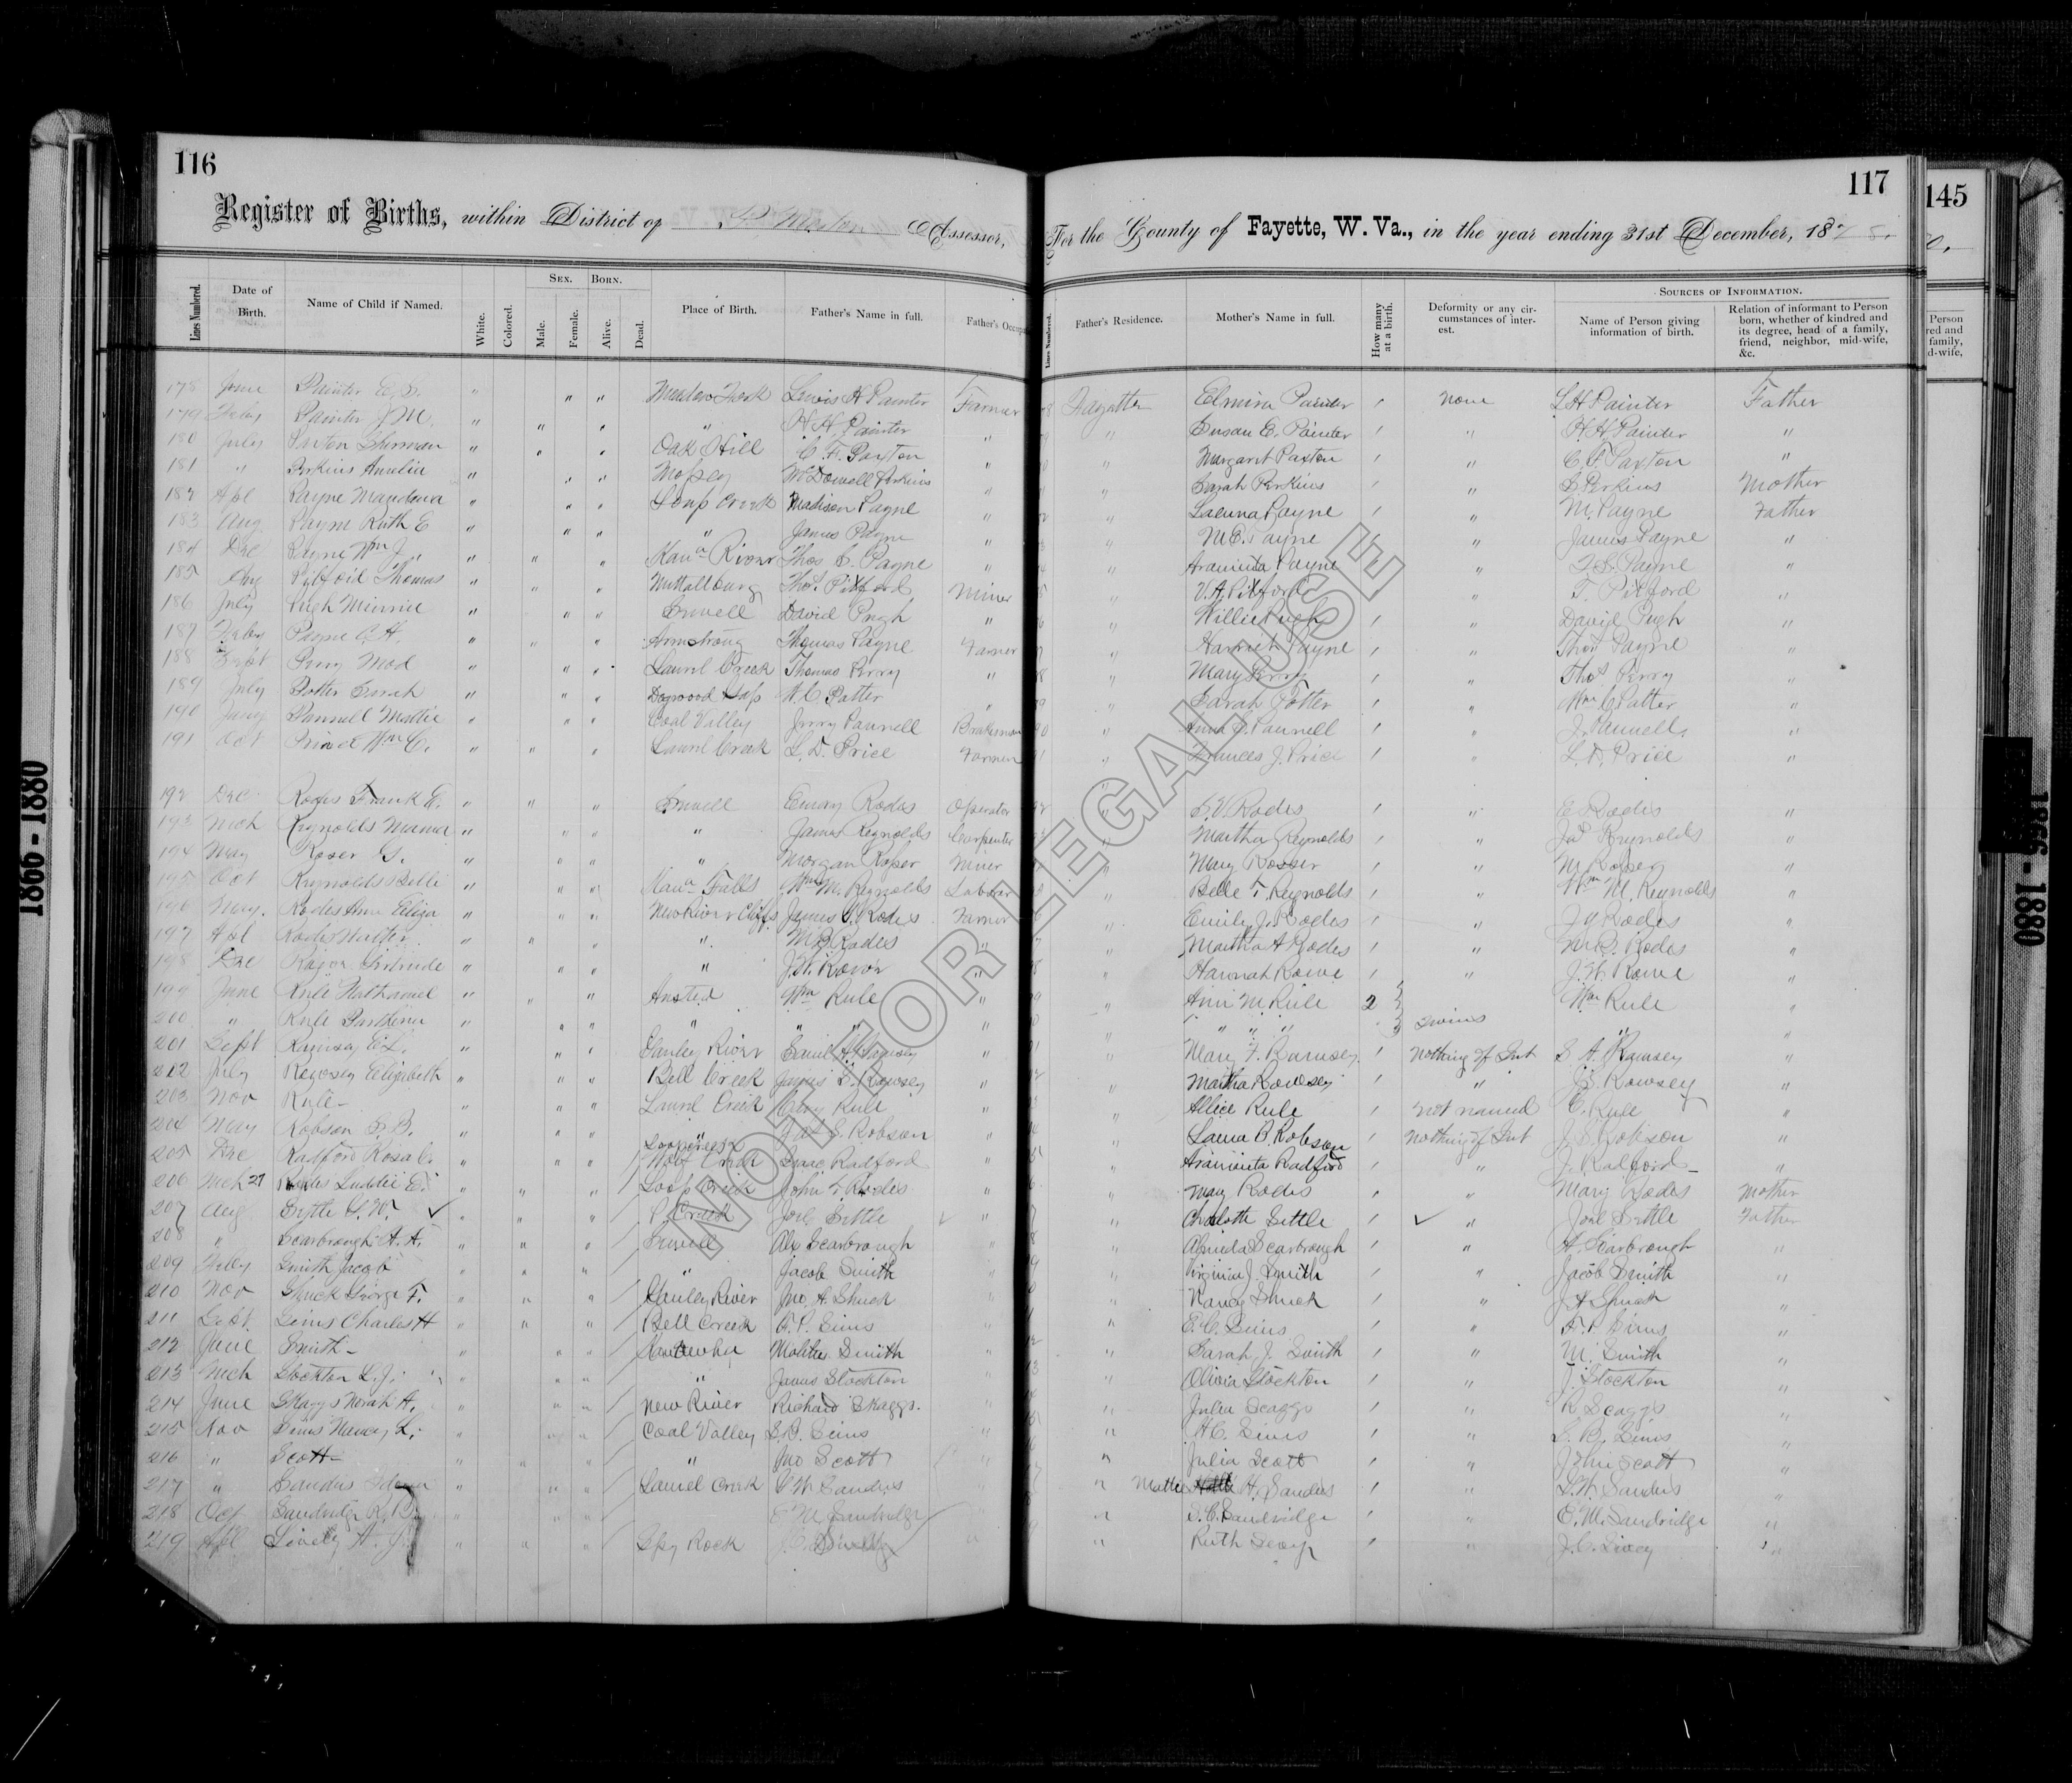 116
Register of Births, within District of P. Morton Assessor,
Lines Numbered. Date of Birth. Name of Child if Named. White. Colored. Sex. Male. Female. Born. Alive. Dead. Place of Birth. Father's Name in full. Father's Occupa
117
For the County of Fayette, W. Va., in the year ending 31st December, 1878.
Lines Numbered. Father's Residence. Mother's Name in full. How many at a birth. Deformity or any circumstances of interest. Sources of Information. Name of Person giving information of birth. Relation of informant to Person born, whether of kindred and its degree, head of a family, friend, neighbor, mid-wife, &c.
145
Person
red and
family,
d-wife,
178 June Painter E. S. " " " Meadow Fork Lewis H Painter Farmer Fayette Elmira Painter 1 None L H Painter Father
179 Feby Painter J M. " " " " H H Painter " " Susan E. Painter 1 " H H Painter "
180 July Paxton Sherman " " " Oak Hill C. F. Paxton " " Margaret Paxton 1 " C. F. Paxton "
181 " Perkins Amelia " " " Mossy McDowell Perkins " " Sarah Perkins 1 " S Perkins Mother
182 Apl Payne " " " Loup Creek Madison Payne " " Payne 1 " M. Payne Father
183 Aug Payne Ruth E " " " " James Payne " " M E. Payne 1 " James Payne "
184 Dec Payne Wm J. " " " Kana River Thos S. Payne " " Araminta Payne 1 " T. S. Payne "
185 Aug Thomas " " " Nuttallburg Thos. Pitford Miner " V. A. Pitford 1 " T. Pitford "
186 July Pugh Minnie " " " Sewell David Pugh " " Willie Pugh 1 " David Pugh "
187 Feby Payne A. H. " " " Armstrong Thomas Payne Farmer " Harriet Payne 1 " Thos Payne "
188 Sept Perry Mod " " " Laurel Creek Thomas Perry " " Mary Perry 1 " Thos Perry "
189 July Potter Sarah " " " Dogwood Gap W. C. Potter " " Sarah Potter 1 " Wm C Potter "
190 Jany Pannell Mattie " " " Coal Valley Jerry Pannell Brakeman " Anna Pannell 1 " J. Pannell "
191 Oct Wm C. " " " Laurel Creek L. D. Price Farmer " Frances J. Price 1 " L. D. Price "
192 Dec Rodes Frank E. " " " Sewell Emory Rodes Operator " S. V. Rodes 1 " E Rodes "
193 Mch Reynolds " " " " James Reynolds Carpenter " Martha Reynolds 1 " Jas Reynolds "
194 May Roser G. " " " " Morgan Miner " Mary Rosser 1 " M "
195 Oct Reynolds Belle " " " Kana Falls Wm M. Reynolds Laborer " Belle F. Reynolds 1 " Wm M. Reynolds "
196 May. Rodes Ann Eliza " " " New River Cliffs James Rodes Farmer " Emily J. Rodes 1 " Rodes "
197 Apl Rodes Walter " " " " M. B. Rodes " " Martha A Rodes 1 " M. B. Rodes "
198 Dec Gertrude " " " " J. W. " " Hannah Rowe 1 " J. W. Rowe "
199 June Rule Nathaniel " " " Ansted Wm Rule " " Ann M Rule 2 Wm Rule
200 " Rule Parthena " " " " " " " " " " Twins " "
201 Sept Ramsey E. L. " " " Gauley River Ramsey " " Mary F. Ramsey 1 Nothing of Int S A. Ramsey "
202 July Elizabeth " " " Bell Creek James S. Rowsey " " Martha Rowsey 1 " J. S. Rowsey "
203 Nov Rule - " " " Laurel Creek Rule " " Allice Rule 1 not named C. Rule "
204 May Robson S. B. " " " " Jas S. Robson " " Laura B. Robson 1 Nothing of Int J. S. Robison "
205 Dec Radford " " " Loop Creek Wolf Creek Isaac Radford " " Araminta Radford 1 " Radford "
206 Mch 27 Luddie E. " " " Loop Creek John T. Rodes " " Mary Rodes 1 " Mary Rodes Mother
207 Aug Settle ✓ " " " Creek Joel Settle ✓ " " Charlotte Settle 1 ✓ " Joel Settle Father
208 " Scarbrough A. A. " " " Sewell Alx Scarbrough " " Scarbrough 1 " A. Scarbrough "
209 Feby Smith Jacob " " " " Jacob Smith " " Virginia J. Smith 1 " Jacob Smith "
210 Nov Shuck George F. " " " Gauley River Jno. A. Shuck " " Nancy Shuck 1 " J A Shuck "
211 Sept. Sims Charles H " " " Bell Creek F. P. Sims " " E. C. Sims 1 " F. P. Sims "
212 June Smith - " " " Kanawha Smith " " Sarah J. Smith 1 " M. Smith "
213 Mch Stockton L. J. " " " " James Stockton " " Olivia Stockton 1 " J. Stockton "
214 June Skaggs Norah A. " " " New River Richard Skaggs. " " Julia Scaggs 1 " R Scaggs "
215 Nov Sims Nancy L. " " " Coal Valley S. B. Sims " " H C. Sims 1 " S. B. Sims "
216 " Scott - " " " " Jno Scott " " Julia Scott 1 " John Scott "
217 " Sanders " " " Laurel Creek Sanders " " H. Sanders 1 " Sanders "
218 Oct Sandridge " " E M Sandridge " " S. C. Sandridge 1 " E. M. Sandridge "
219 Apl Lively A. J. " " " Spy Rock J. C. " " Ruth 1 " J. C. "
1866 - 1880
1866 - 1880
NOT FOR LEGAL USE